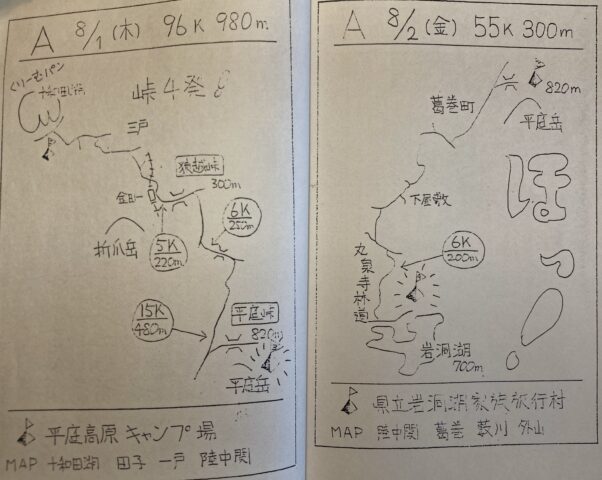 A 8/1 (木) 96K 980m
くりーむパン
十和田湖
峠4発
三戸
猿越峠
300m
金田一
6K
250m
折爪岳
5K
220m
15K
480m
平庭峠
820m
平庭岳
平庭高原キャンプ場
MAP 十和田湖 田子 一戸 陸中関
A 8/2 (金) 55K 300m
820m
葛巻町
平庭岳
ほ
下屋敷
っ
丸泉寺林道
6K
200m
岩洞湖
700m
県立岩洞湖家族旅行村
MAP 陸中関 葛巻 藪川 外山